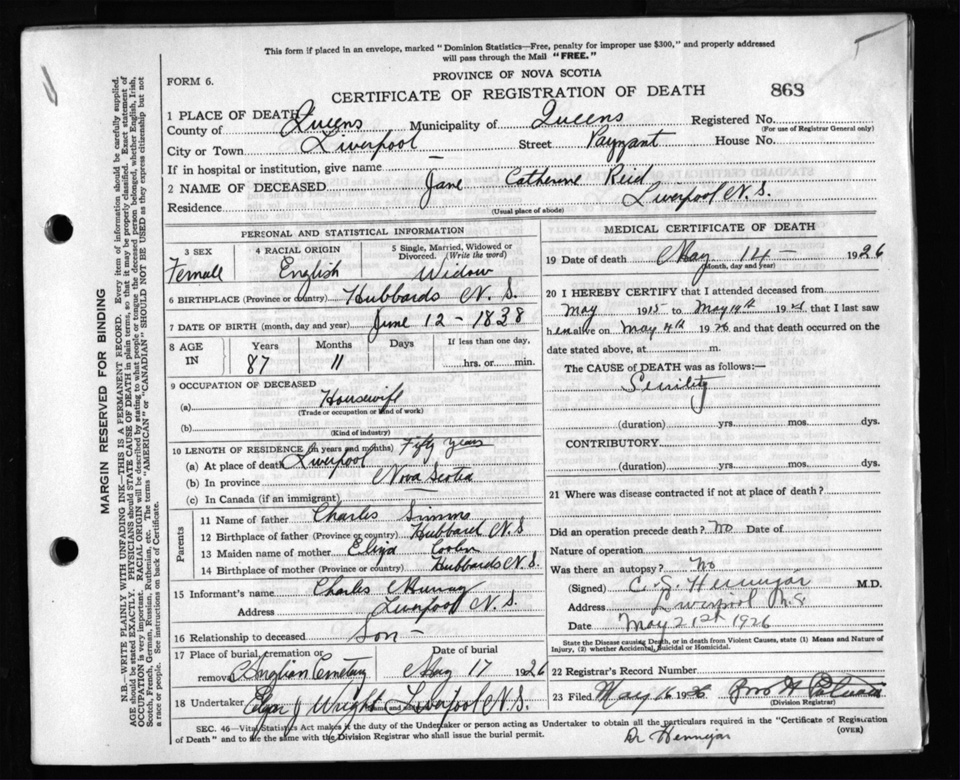 This form if placed in an envelope, marked "Dominion Statistics—Free, penalty for improper use $300," and properly addressed
will pass through the Mail "FREE."
PROVINCE OF NOVA SCOTIA
FORM 6.
CERTIFICATE OF REGISTRATION OF DEATH 868
1 PLACE OF DEATH
County of Queens Municipality of Queens Registered No.
(For use of Registrar General only)
City or Town Liverpool Street Payzant House No.
If in hospital or institution, give name
2 NAME OF DECEASED Jane Catherine Reid
Residence Liverpool N.S.
(Usual place of abode)
PERSONAL AND STATISTICAL INFORMATION
3 SEX 4 RACIAL ORIGIN 5 Single, Married, Widowed or
Divorced. (Write the word)
Female English Widow
6 BIRTHPLACE (Province or country) Hubbards N.S.
7 DATE OF BIRTH (month, day and year) June 12 - 1838
8 AGE IN Years Months Days If less than one day,
87 11 hrs. or min.
9 OCCUPATION OF DECEASED
(a) Housewife
(Trade or occupation or kind of work)
(b)
(Kind of industry)
10 LENGTH OF RESIDENCE (in years and months) Fifty years
(a) At place of death Liverpool
(b) In province Nova Scotia
(c) In Canada (if an immigrant)
Parents
11 Name of father Charles Simms
12 Birthplace of father (Province or country) Hubbard N.S.
13 Maiden name of mother Eliza
14 Birthplace of mother (Province or country) Hubbards N.S.
15 Informant's name Charles Murray
Address Liverpool N.S.
16 Relationship to deceased Son
17 Place of burial, cremation or Date of burial
removal Anglian Cemetery May 17 1926
18 Undertaker J Wright (name and address) Liverpool N.S.
MEDICAL CERTIFICATE OF DEATH
19 Date of death May 14 - 1926
(Month, day and year)
20 I HEREBY CERTIFY that I attended deceased from
May 1915 to May 14th 192 that I last saw
her alive on May 4th 1926 and that death occurred on the
date stated above, at m.
The CAUSE of DEATH was as follows:—
Senility
(duration) yrs. mos. dys.
CONTRIBUTORY
(duration) yrs. mos. dys.
21 Where was disease contracted if not at place of death?
Did an operation precede death? No Date of
Nature of operation
Was there an autopsy? No
(Signed) C. S. Hennigar M.D.
Address Liverpool N.S.
Date May 21st 1926
State the Disease causing Death, or in death from Violent Causes, state (1) Means and Nature of
Injury, (2) whether Accidental, Suicidal or Homicidal.
22 Registrar's Record Number
23 Filed May 16 1926
(Division Registrar)
SEC. 46—Vital Statistics Act makes it the duty of the Undertaker or person acting as Undertaker to obtain all the particulars required in the "Certificate of Registration
of Death" and to file the same with the Division Registrar who shall issue the burial permit. (OVER)
Dr Hennigar
MARGIN RESERVED FOR BINDING
N.B.—WRITE PLAINLY WITH UNFADING INK—THIS IS A PERMANENT RECORD. Every item of information should be carefully supplied.
AGE should be stated EXACTLY. PHYSICIANS should STATE CAUSE OF DEATH in plain terms, so that it may be properly classified. Exact statement of
OCCUPATION is very important. RACIAL ORIGIN will be described by stating to what people or tongue the deceased person belonged, whether English, Irish,
Scotch, French, German, Russian, Ruthenian, etc. The terms "AMERICAN" or "CANADIAN" SHOULD NOT BE USED as they express citizenship but not
a race or people. See instructions on back of Certificate.